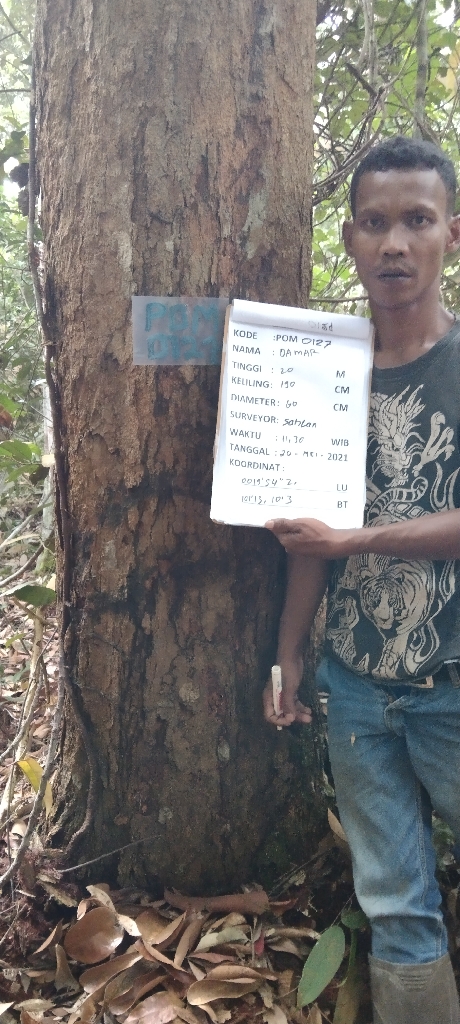 POM
0127
KODE :POM 0127
NAMA : DAMAR
TINGGI : 20 M
KELILING: 190 CM
DIAMETER: 60 CM
SURVEYOR: Sahlan
WAKTU : 11,36 WIB
TANGGAL : 20 - MEI - 2021
KOORDINAT :
LU
BT